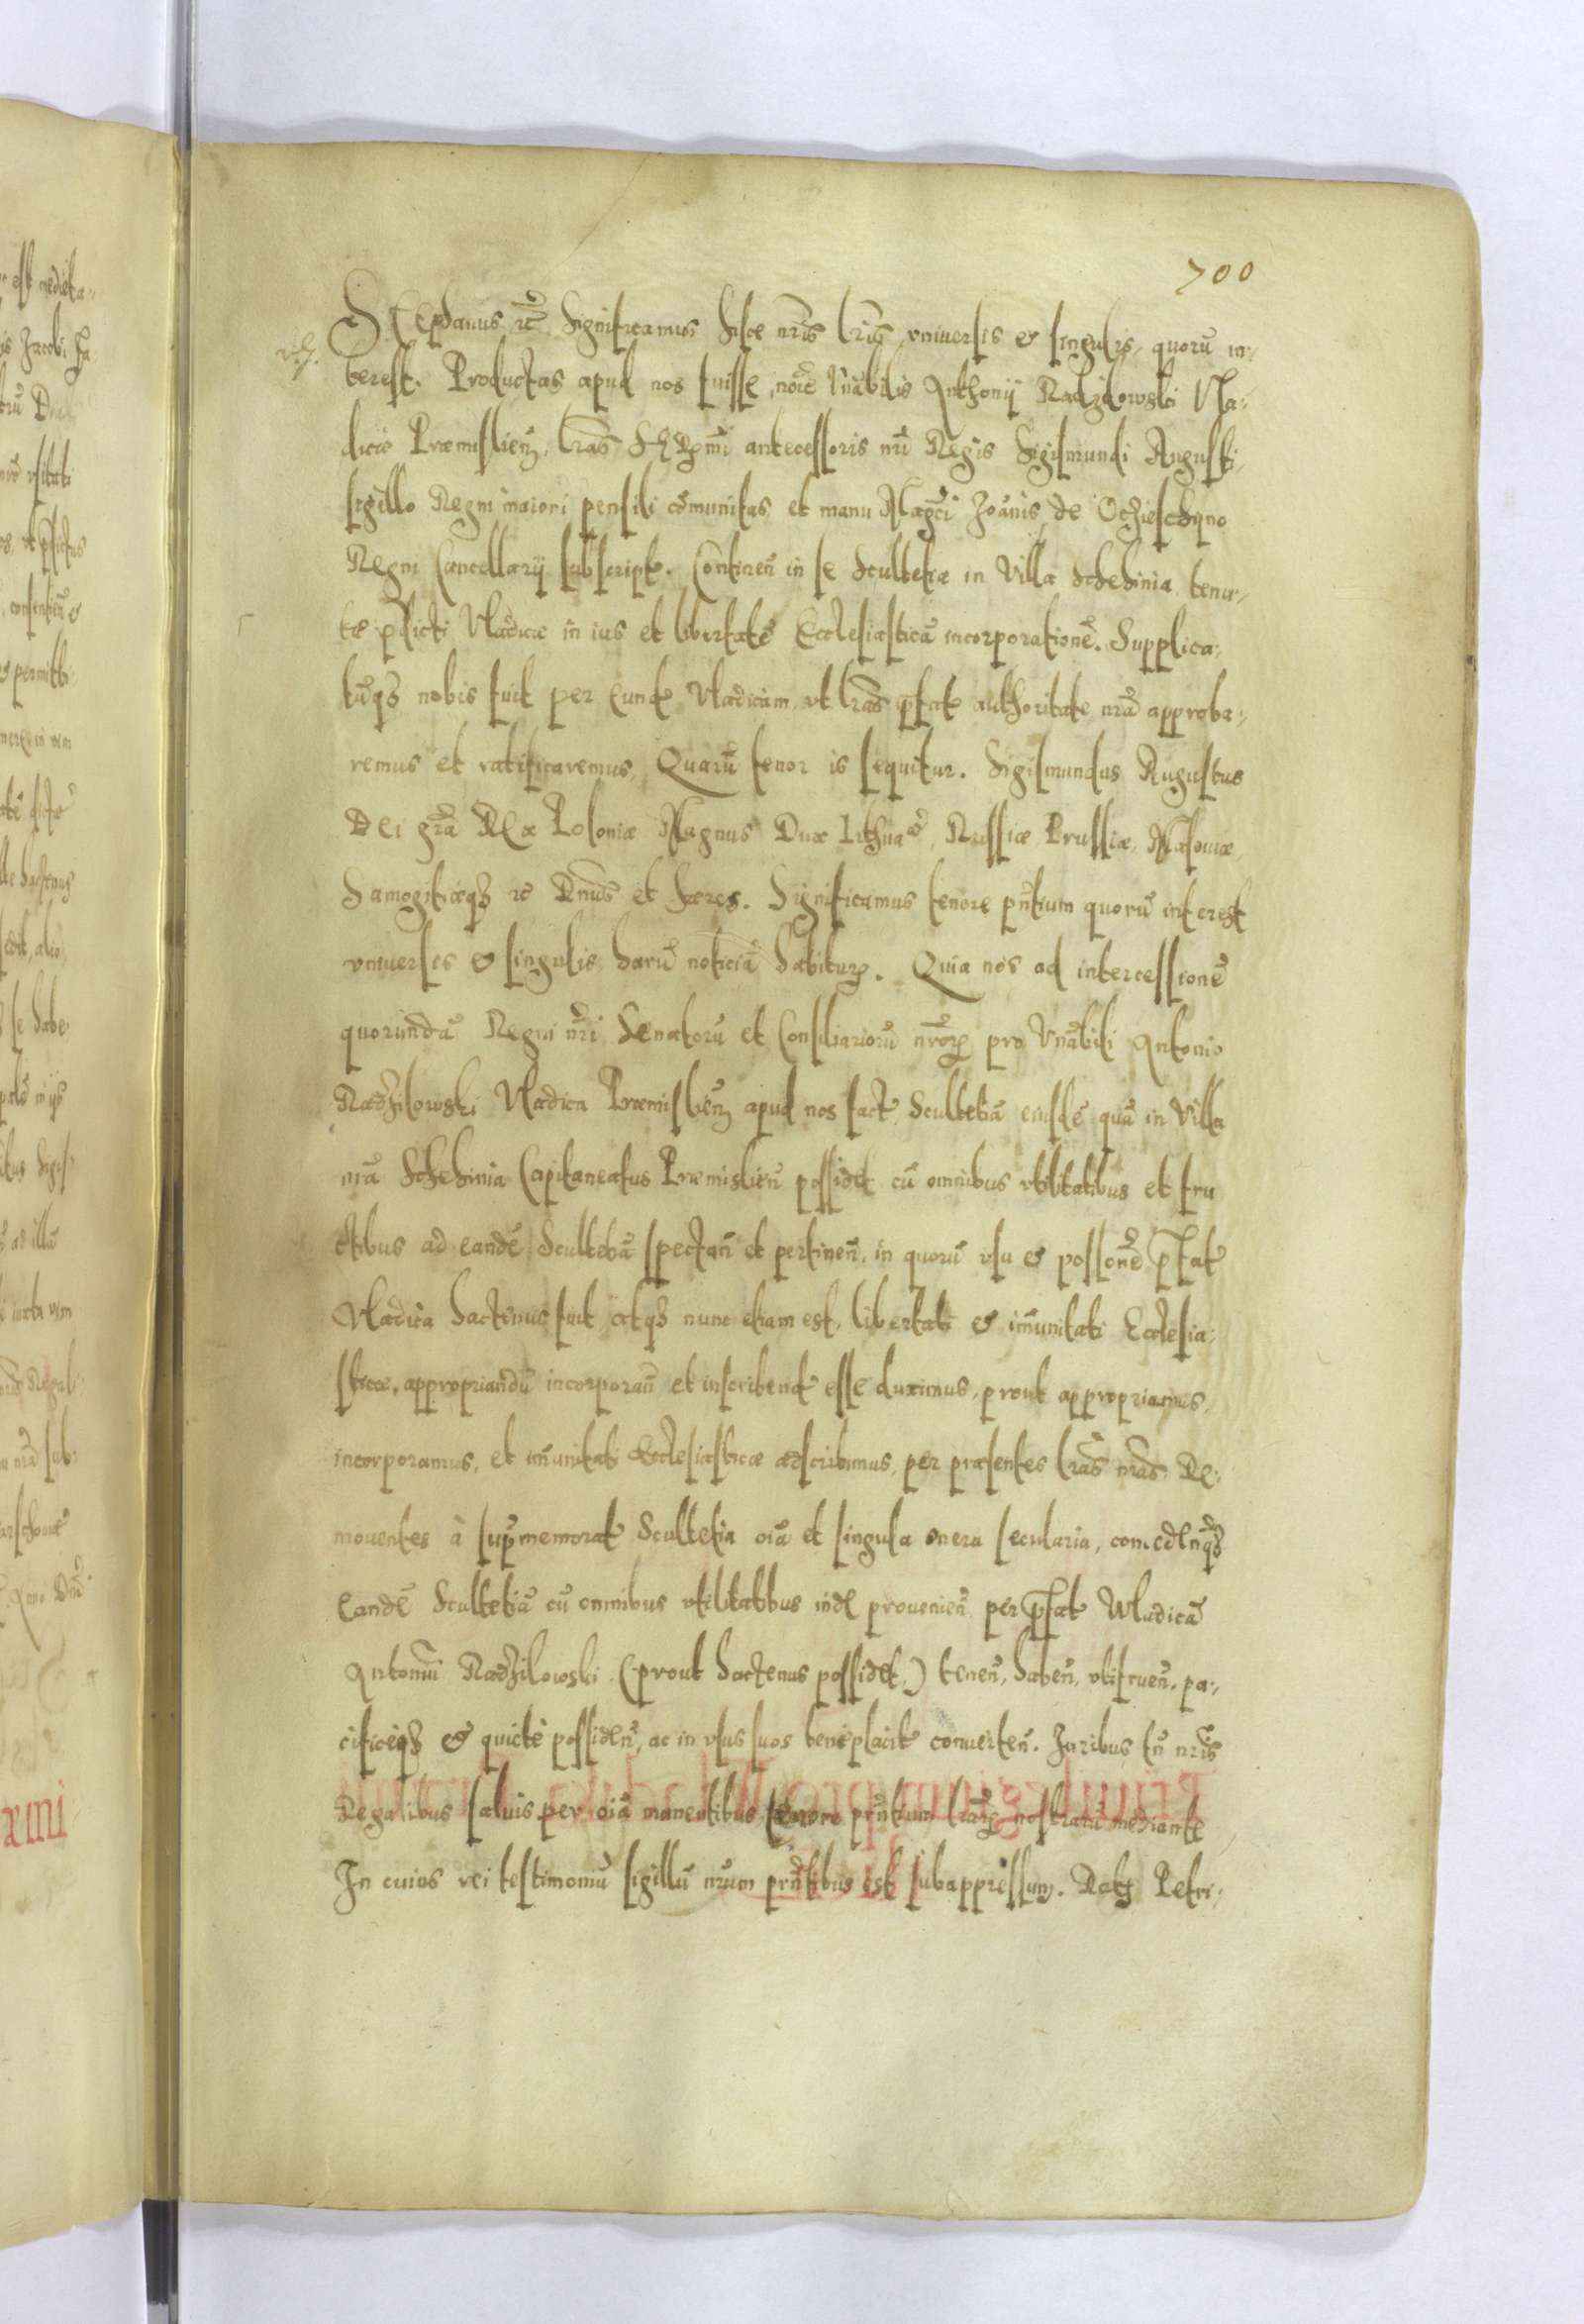 700
Stephanus etc̃ Significamus hisce nr̃is lr̃is vniuersis et singulis, quorũ in-
terest. Productas apud nos fuisse, noĩe Vn̄abilis Anthonij Radzilowski Vla-
dicis Præmisliеñ, lrãs Ser̃mi antecessoris nr̃i Regis Sigismundi Augusti,
sigillo Regni maiori pensili cõmunitas, et manu Mag̃ci Joãnis de Oczieschyno
Regni Cancellarij subscript. Continen̄ in se Scultetiæ in Villa Schehinia, tenu-
tæ p̃dicti Vladicæ in ius et libertatẽ Ecclesiasticã incorporationẽ. Supplica-
tũqȝ nobis fuit per eund Vladicam, vt lrãs p̃fat authoritate nr̃a approba-
remus et ratificaremus, Quarũ tenor is sequitur. Sigismundus Augustus
Dei gr̃a Rex Poloniæ Magnus Dux Lithuaæ, Russiæ, Prussiæ, Masouiæ,
Samogitiæqȝ etc Dn̄us et hæres. Significamus tenore pn̄tium quorũ interest
vniuersis et singulis harũ noticiã habitur. Quia nos ad intercessionẽ
quorundã Regni nr̃i Senatorũ et Consiliariorũ nr̃or pro Vn̄abili Antonio
Radzilowski Vladica Præmislien̄ apud nos fact, Scultetiã eiusdẽ quã in Villa
nr̃a Schehinia Capitaneatus Præmislien̄ possidet cũ omnibus vtilitatibus et fru
ctibus ad eandẽ Scultetiã spectan̄ et pertinen̄, in quorũ vsu et poss̃one p̃fat
Vladica hactenus fuit, atqȝ nunc etiam est, libertati et im̃unitati Ecclesia-
sticæ, appropriandũ incorporan̄ et inscribend esse duximus, prout appropriamus,
incorporamus, et im̃unitati Ecclesiasticæ adscribimus, per præsentes lrãs nrãs Re-
mouentes à sup̃memorat Scultetia oĩa et singula onera secularia, concedẽn̄qȝ
eandẽ Scultetiã cũ omnibus vtilitatibus indẽ prouenien̄ per p̃fat Wladicã
Antoniũ Radzilowski (prout hactenus possidet,) tenen̄, haben̄, vtifruen̄, pa-
cificèqȝ et quietè possiden̄, ac in vsus suos beneplacit conuerten̄. Juribus tn̄ nr̃is
Regalibus saluis per oĩa manentibus tenore pn̄tium lr̃ar nostrarũ mediante
In cuius rei testimoniũ sigillũ nr̃um pn̄tibus est subappressum. Dat Petri-